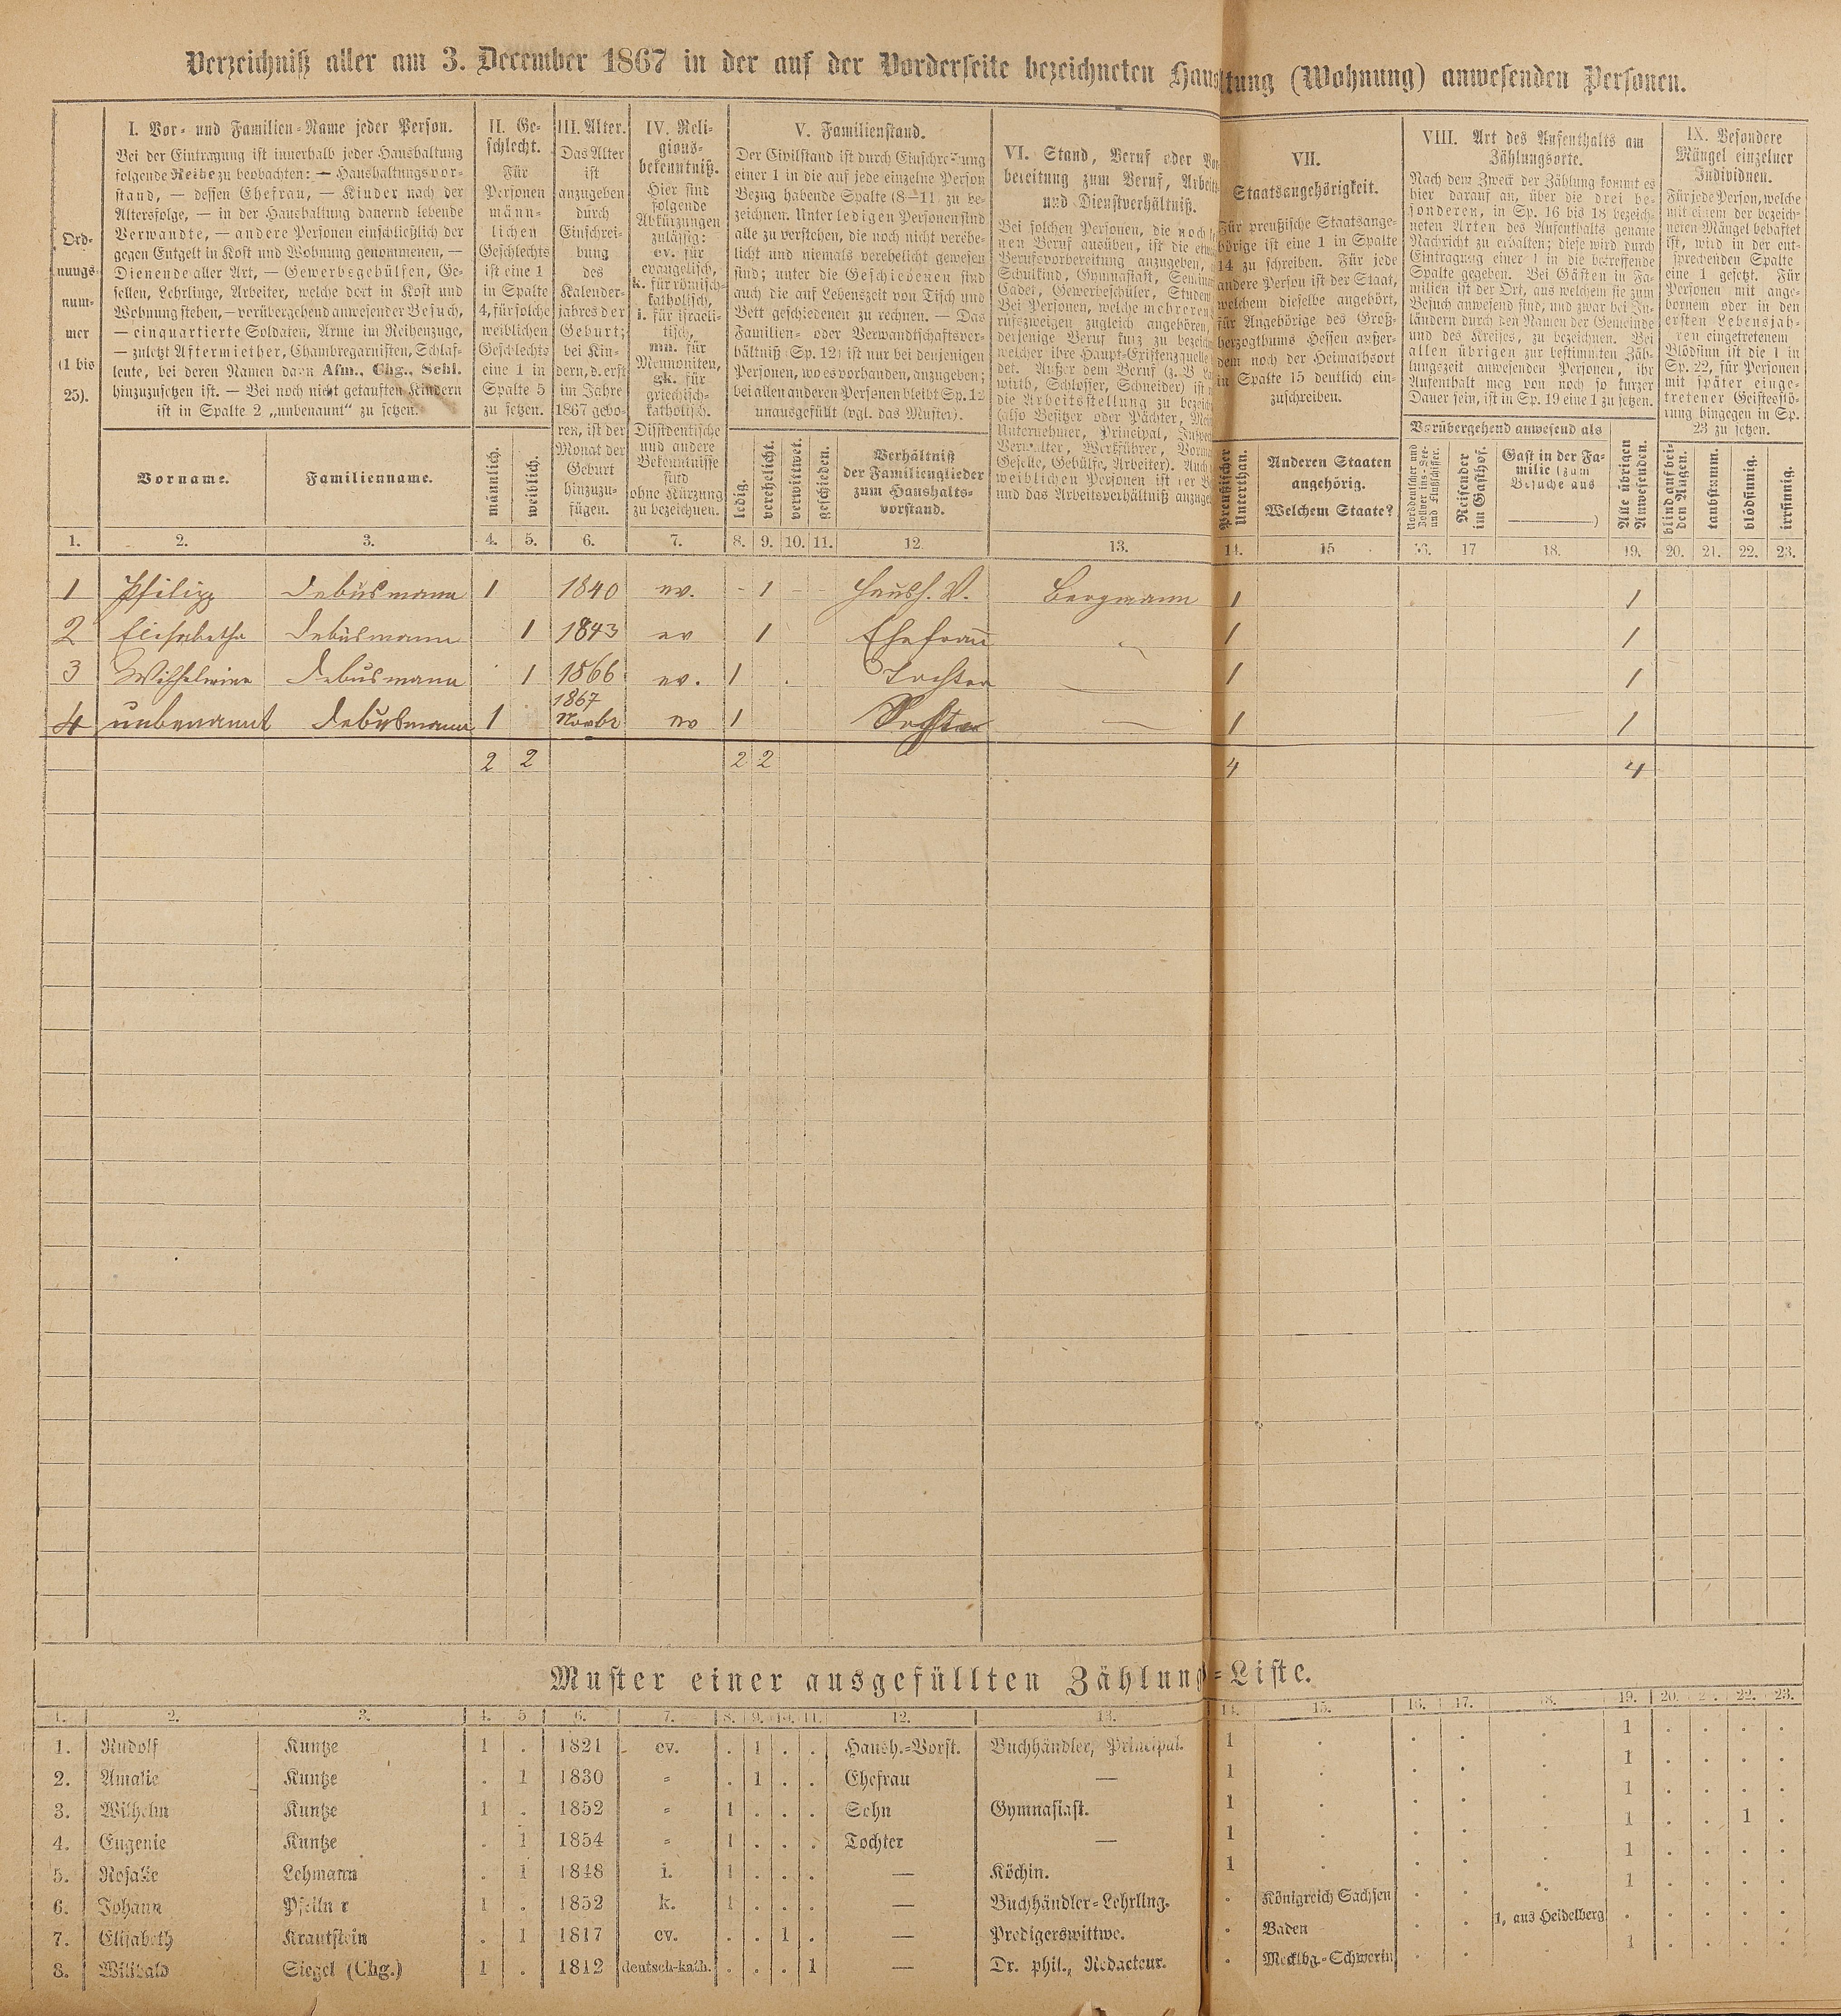 Verzeichniß aller am 3. December 1867 in der auf der Vorderseite bezeichneten Haus tung (Wohnung) anwesenden Personen.
Ord-
nungs
num-
mer
(1 bis
25).
I. Vor- und Familien-Name jeder Person.
Bei der Eintragung ist innerhalb jeder Haushaltung
folgende Reihe zu beobachten: — Haushaltungsvor-
stand, — dessen Ehefrau, — Kinder nach der
Altersfolge, — in der Haushaltung dauernd lebende
Verwandte, — andere Personen einschließlich der
gegen Entgelt in Kost und Wohnung genommenen, —
Dienende aller Art, — Gewerbsgehülfen, Ge-
sellen, Lehrlinge, Arbeiter, welche dort in Kost und
Wohnung stehen, — vorübergehend anwesender Besuch,
— einquartierte Soldaten, Arme im Reihenzuge,
— zuletzt Aftermiether, Chambregarnisten, Schlaf-
leute, bei deren Namen dann Afm., Chg., Schl.
hinzuzusetzen ist. — Bei noch nicht getauften Kindern
ist in Spalte 2 „unbenannt“ zu setzen.
Vorname.
Familienname.
II. Ge-
schlecht.
Für
Personen
männ-
lichen
Geschlechts
ist eine 1
in Spalte
4, für solche
weiblichen
Geschlechts
eine 1 in
Spalte 5
zu setzen.
männlich.
weiblich.
III. Alter.
Das Alter
ist
anzugeben
durch
Einschrei-
bung
des
Kalender-
jahres der
Geburt;
bei Kin-
dern, d. erst
im Jahre
1867 gebo-
ren, ist der
Monat der
Geburt
hinzuzu-
fügen.
IV. Reli-
gions-
bekenntniß.
Hier sind
folgende
Abkürzungen
zulässig:
ev. für
evangelisch,
k. für römisch-
katholisch,
i. für israeli-
tisch,
mn. für
Mennoniten,
gk. für
griechisch-
katholisch.
Dissidentische
und andere
Bekenntnisse
sind
ohne Kürzung
zu bezeichnen.
V. Familienstand.
Der Civilstand ist durch Einschreibung
einer 1 in die auf jede einzelne Person
Bezug habende Spalte (8—11) zu be-
zeichnen. Unter ledigen Personen sind
alle zu verstehen, die noch nicht verehe-
licht und niemals verehelicht gewesen
sind; unter die Geschiedenen sind
auch die auf Lebenszeit von Tisch und
Bett geschiedenen zu rechnen. — Das
Familien- oder Verwandtschaftsver-
hältniß (Sp. 12) ist nur bei denjenigen
Personen, wo es vorhanden, anzugeben;
bei allen anderen Personen bleibt Sp. 12
unausgefüllt (vgl. das Muster).
ledig.
verehelicht.
verwittwet.
geschieden.
Verhältniß
der Familienglieder
zum Haushalts-
vorstand.
VI. Stand, Beruf oder Vor
bereitung zum Beruf, Arbeits-
und Dienstverhältniß.
Bei solchen Personen, die noch
nen Beruf ausüben, ist die
Berufsvorbereitung anzugeben,
Schulkind, Gymnasiast,
Cadet, Gewerbeschüler,
Bei Personen, welche mehreren
rufszweigen zugleich angehören,
derjenige Beruf kurz zu
welcher ihre Haupt-Existenzquelle
det. Außer dem Beruf (z. B.
wirth, Schlosser, Schneider) ist
die Arbeitsstellung zu
(also Besitzer oder Pächter,
Unternehmer, Principal,
Verwalter, Werkführer,
Geselle, Gehülfe, Arbeiter). Auch
weiblichen Personen ist
und das Arbeitsverhältniß
VII.
Staatsangehörigkeit.
Für preußische Staatsange-
hörige ist eine 1 in Spalte
14 zu schreiben. Für jede
andere Person ist der Staat,
welchem dieselbe angehört,
für Angehörige des Groß-
herzogthums Hessen außer-
dem noch der Heimathsort
in Spalte 15 deutlich ein-
zuschreiben.
Preußischer
Unterthan.
Anderen Staaten
angehörig.
Welchem Staate?
VIII. Art des Aufenthalts am
Zählungsorte.
Nach dem Zweck der Zählung kommt es
hier darauf an, über die drei be-
sonderen, in Sp. 16 bis 18 bezeich-
neten Arten des Aufenthalts genaue
Nachricht zu erhalten; diese wird durch
Eintragung einer 1 in die betreffende
Spalte gegeben. Bei Gästen in Fa-
milien ist der Ort, aus welchem sie zum
Besuch anwesend sind, und zwar bei In-
ländern durch den Namen der Gemeinde
und des Kreises, zu bezeichnen. Bei
allen übrigen zur bestimmten Zäh-
lungszeit anwesenden Personen, ihr
Aufenthalt mag von noch so kurzer
Dauer sein, ist in Sp. 19 eine 1 zu setzen.
Vorübergehend anwesend als
Norddeutscher und
Zollver ins-See-
und Flußschiffer.
Reisender
im Gasthof.
Gast in der Fa-
milie (zum
Besuche aus
)
Alle übrigen
Anwesenden.
IX. Besondere
Mängel einzelner
Individuen.
Für jede Person, welche
mit einem der bezeich-
neten Mängel behaftet
ist, wird in der ent-
sprechenden Spalte
eine 1 gesetzt. Für
Personen mit ange-
bornem oder in den
ersten Lebensjah-
ren eingetretenem
Blödsinn ist die 1 in
Sp. 22, für Personen
mit später einge-
tretener Geistesstö-
rung hingegen in Sp.
23 zu setzen.
blind auf bei-
den Augen.
taubstumm.
blödsinnig.
irrsinnig.
1. 2. 3. 4. 5. 6. 7. 8. 9. 10. 11. 12 13. 14. 15 16. 17 18. 19. 20. 21. 22. 23.
1 Philipp Debusmann 1 1840 ev. 1 Haush. V. Bergmann 1 1
2 Elisabetha Debusmann 1 1843 ev 1 Ehefrau 1 1
3 Wilhelmine Debusmann 1 1866 ev. 1 Tochter — 1 1
4 unbenannt Debusmann 1 1867 Novbr ev 1 — 1 1
2 2 2 2 4 4
Muster einer ausgefüllten Zählung -Liste.
1. 2. 3. 4. 5 6. 7. 8. 9. 10. 11. 12. 13. 14. 15. 16. 17. 18. 19. 20. 2 . 22. 23.
1. Rudolf Kuntze 1 . 1821 ev. . 1 . . Haush.-Vorst. Buchhändler, Principal. 1 . . . . 1 . . . .
2. Amalie Kuntze . 1 1830 = . 1 . . Ehefrau — 1 . . . 1 . . . .
3. Wilhelm Kuntze 1 . 1852 = 1 . . . Sohn Gymnasiast. 1 . . . 1 . . . .
4. Eugenie Kuntze . 1 1854 = 1 . . . Tochter — 1 . . . 1 . . 1 .
5. Rosalie Lehmann . 1 1848 i. 1 . . . — Köchin. 1 . . . 1 . . . .
6. Johann Pfeiln r 1 . 1852 k. 1 . . . — Buchhändler-Lehrling. . Königreich Sachsen . . . 1 . . . .
7. Elisabeth Krautstein . 1 1817 ev. . . 1 . — Predigerswittwe. . Baden . . 1, aus Heidelberg . . . . .
8. Wilibald Siegel (Chg.) 1 . 1812 deutsch-kath. . . . 1 — Dr. phil., Redacteur. . Mecklbg.-Schwerin . . . 1 . . . .